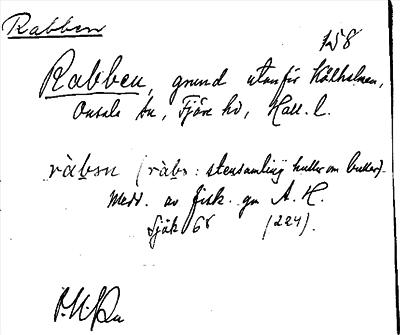 Rabben
158
Rabben, grund utanför Kålholmen,
Onsala sn, Fjäre hd, Hall. l.
ràbsn (ràbs: stensamling huller om buller).
Medd. av fisk. gm A. H.
Sjök 68 (224).